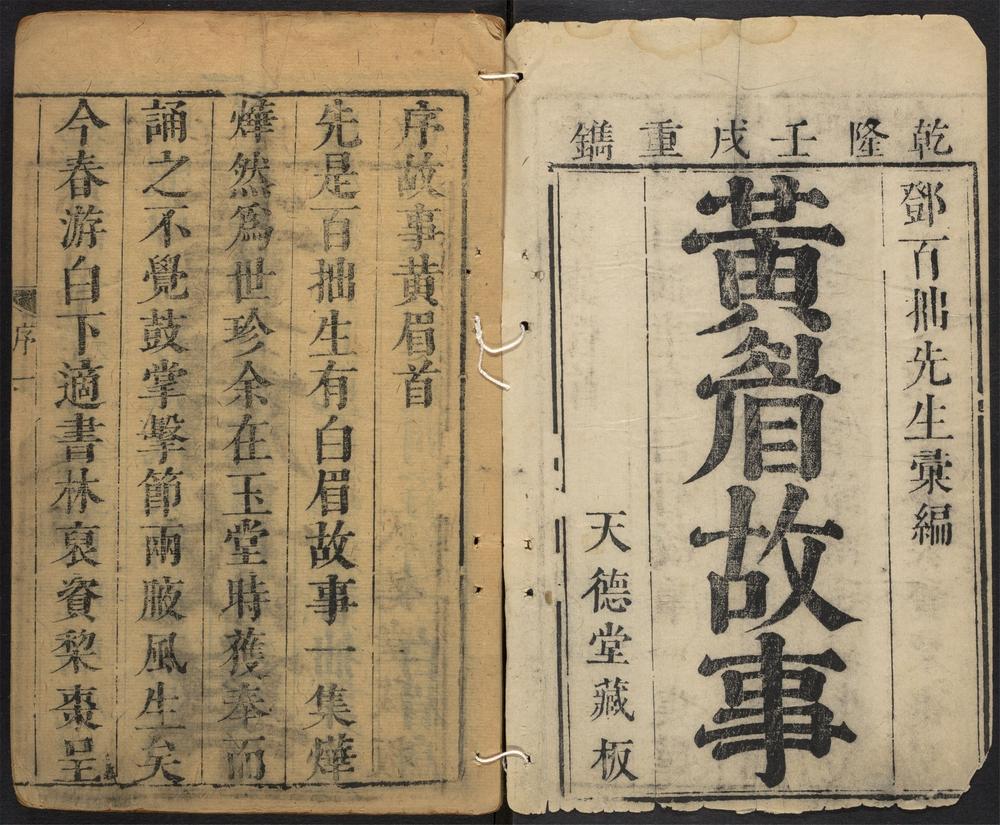 乾隆壬戌重鐫
鄧百拙先生彙編
黃眉故事
天德堂藏板
序故事黃眉首
先是百拙生有白眉故事一集燁
燁然爲世珍余在玉堂時獲奉而
誦之不覺鼓掌擊節兩腋風生矣
今春游白下適書林裒資棃棗呈
序
一